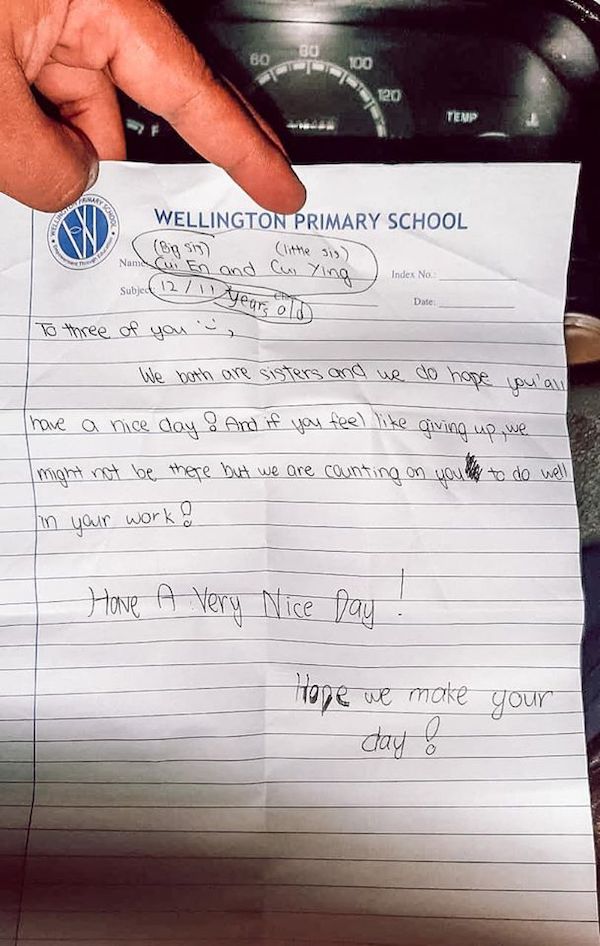 60 80 100 120
TEMP
F
WELLINGTON PRIMARY SCHOOL
WELLINGTON PRIMARY SCHOOL
W
(Big sis) (little sis)
Name: Cui En and Cui Ying
Index No.:
Subject: 12/11 years old
Date:
To three of you,
We both are sisters and we do hope you'all
have a nice day! And if you feel like giving up, we
might not be there but we are counting on you to do well
in your work!
Have A Very Nice Day!
Hope we make your
day!